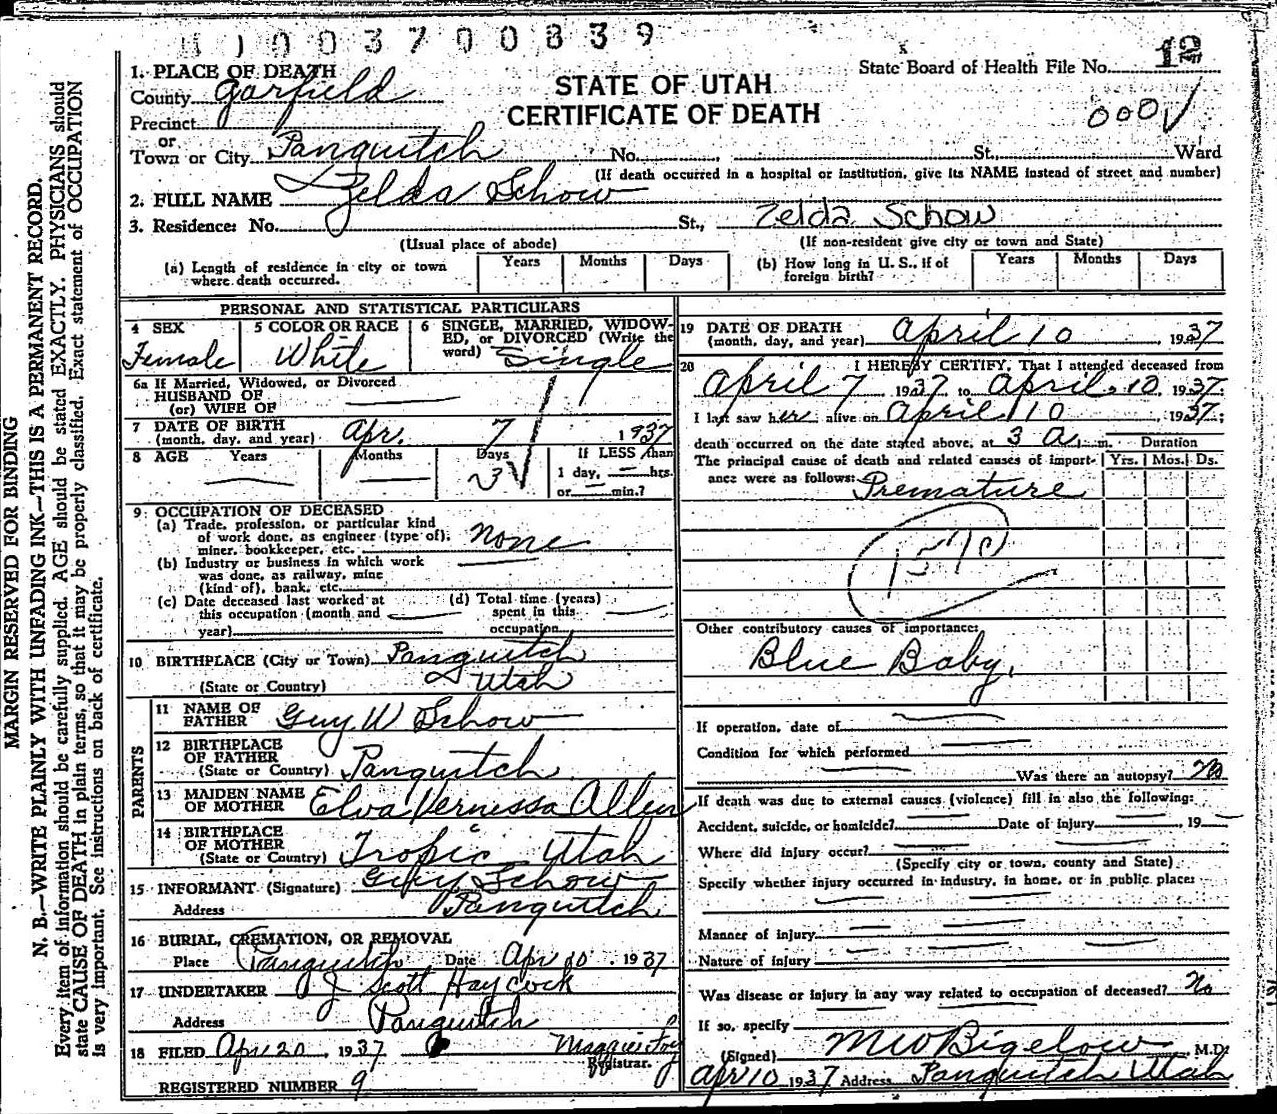 1003700839
12
State Board of Health File No.
000√
STATE OF UTAH
CERTIFICATE OF DEATH
1. PLACE OF DEATH
County Garfield
Precinct
or
Town or City Panguitch No. , St., Ward
(If death occurred in a hospital or institution, give its NAME instead of street and number)
2. FULL NAME Zelda Schow
3. Residence: No. St., Zelda Schow
(Usual place of abode) (If non-resident give city or town and State)
(a) Length of residence in city or town where death occurred. Years Months Days
(b) How long in U. S., if of foreign birth? Years Months Days
PERSONAL AND STATISTICAL PARTICULARS
4 SEX Female
5 COLOR OR RACE White
6 SINGLE, MARRIED, WIDOWED, or DIVORCED (Write the word) Single
6a If Married, Widowed, or Divorced
HUSBAND OF
(or) WIFE OF
7 DATE OF BIRTH
(month, day, and year) Apr. 7 1937
8 AGE Years Months Days 3 If LESS than
1 day, hrs.
or min.?
9 OCCUPATION OF DECEASED
(a) Trade, profession, or particular kind
of work done, as engineer (type of),
miner, bookkeeper, etc. None
(b) Industry or business in which work
was done, as railway, mine
(kind of), bank, etc.
(c) Date deceased last worked at
this occupation (month and
year)
(d) Total time (years)
spent in this
occupation
10 BIRTHPLACE (City or Town) Panguitch
(State or Country) Utah
PARENTS
11 NAME OF
FATHER Guy W Schow
12 BIRTHPLACE
OF FATHER
(State or Country) Panguitch
13 MAIDEN NAME
OF MOTHER Elva Vernessa Allen
14 BIRTHPLACE
OF MOTHER
(State or Country) Tropic Utah
15 INFORMANT (Signature) Guy Schow
Address Panguitch
16 BURIAL, CREMATION, OR REMOVAL
Place Panguitch Date Apr 10, 1937
17 UNDERTAKER J Scott Haycock
Address Panguitch
18 FILED Apr 20, 1937 Maggie Foy
Registrar.
REGISTERED NUMBER 9
19 DATE OF DEATH
(month, day, and year) April 10, 1937
20 I HEREBY CERTIFY, That I attended deceased from
April 7 1937 to April 10, 1937.
I last saw her alive on April 10 1937;
death occurred on the date stated above, at 3 a. m. Duration
The principal cause of death and related causes of importance were as follows: Yrs. Mos. Ds.
Premature
Other contributory causes of importance:
Blue Baby.
If operation, date of
Condition for which performed
Was there an autopsy? No
If death was due to external causes (violence) fill in also the following:
Accident, suicide, or homicide? Date of injury , 19
Where did injury occur?
(Specify city or town, county and State)
Specify whether injury occurred in industry, in home, or in public place:
Manner of injury
Nature of injury
Was disease or injury in any way related to occupation of deceased? No
If so, specify
(Signed) M W Bigelow, M.D.
Apr 10 1937 Address Panguitch Utah
MARGIN RESERVED FOR BINDING
N. B.—WRITE PLAINLY WITH UNFADING INK—THIS IS A PERMANENT RECORD.
Every item of information should be carefully supplied. AGE should be stated EXACTLY. PHYSICIANS should
state CAUSE OF DEATH in plain terms, so that it may be properly classified. Exact statement of OCCUPATION
is very important. See instructions on back of certificate.